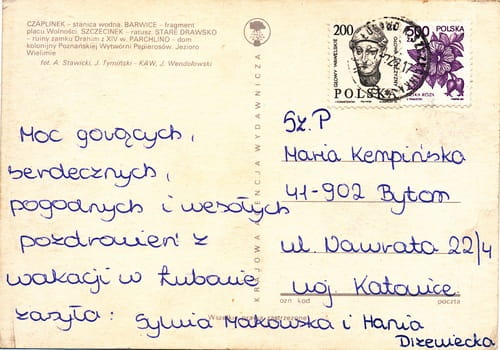 CZAPLINEK – stanica wodna. BARWICE – fragment
placu Wolności. SZCZECINEK – ratusz. STARE DRAWSKO
– ruiny zamku Drahim z XIV w. PARCHLINO – dom
kolonijny Poznańskiej Wytwórni Papierosów. Jezioro
Wielimie
fot. A. Stawicki, J. Tymiński – KAW, J. Wendołowski
KRAJOWA AGENCJA WYDAWNICZA
Moc gorących,
serdecznych,
pogodnych i wesołych
pozdrowień z
wakacji w Łubanie
zasyła: Sylwia Makowska i Hania
Dizewiecka
Wszelkie prawa zastrzeżone
200
GŁOWY WAWELSKIE
POLSKA
POLSKA
Sz. P
Maria Kempińska
41-902 Bytom
ul. Nawrata 22/4
woj. Katowice
ozn kod
poczta